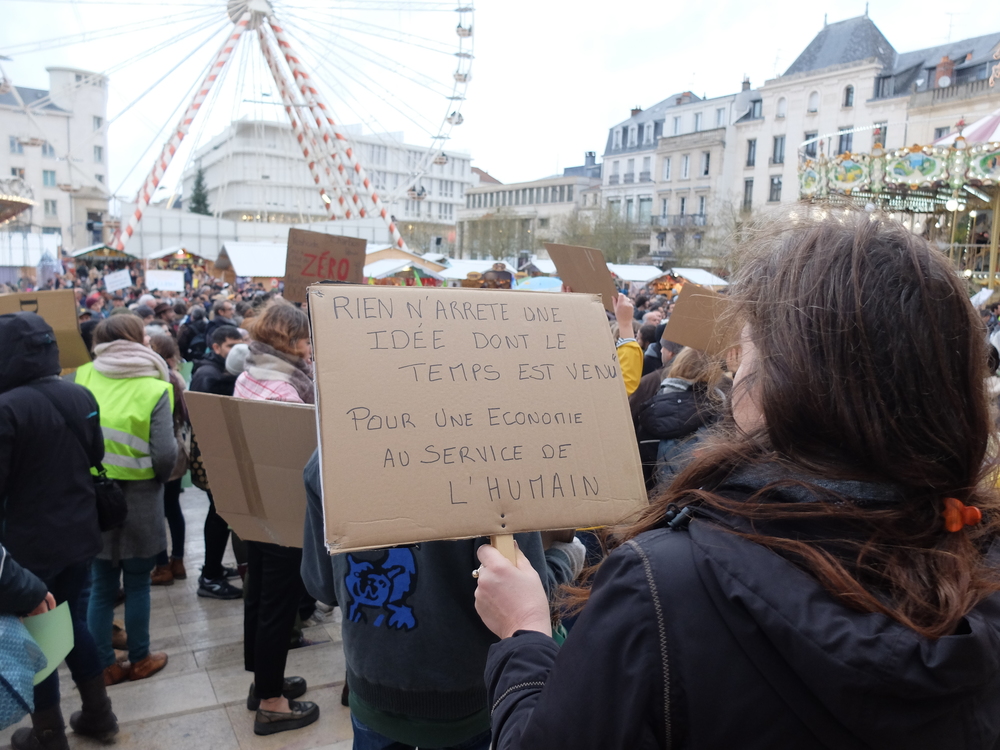 ZÉRO
RIEN N'ARRETE UNE
IDÉE DONT LE
TEMPS EST VENU
POUR UNE ECONOMIE
AU SERVICE DE
L'HUMAIN